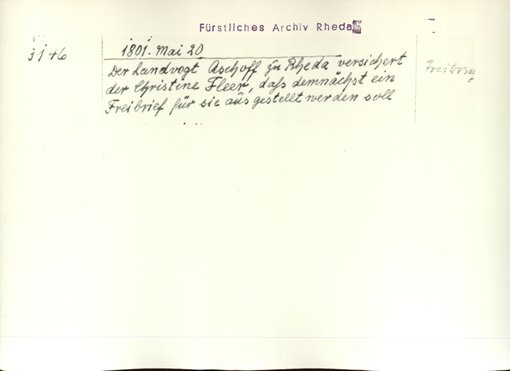 Fürstliches Archiv Rheda
3146
1801. Mai 20
Der Landvogt Aschoff zu Rheda versichert
der Christine Fleer, daſs demnächst ein
Freibrief für sie ausgestellt werden soll